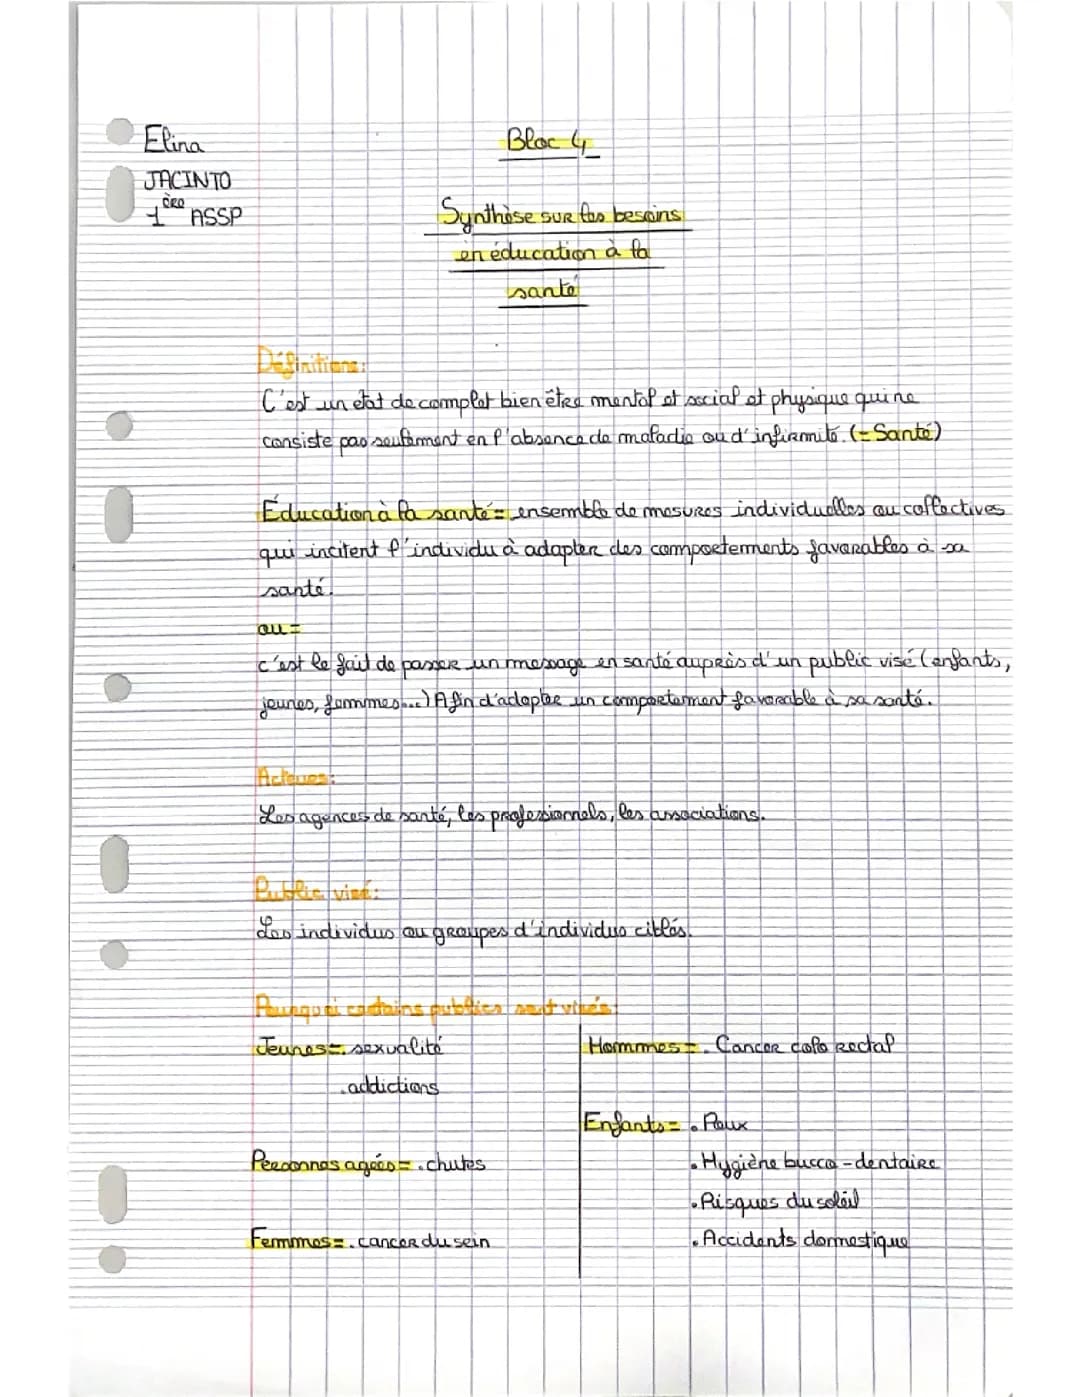 Elina
JACINTO
1ère ASSP
Bloc 4
Synthèse sur les besoins
en éducation à la
santé
Définitions:
C'est un état de complet bien êtres mental et social et physique qui ne
consiste pas seulement en l'absence de maladie ou d'infirmité. (= Santé)
Éducation à la santé = ensemble de mesures individuelles ou collectives
qui incitent l'individu à adapter des comportements favorables à sa
santé.
ou =
c'est le fait de passer un message en santé auprès d'un public visé (enfants,
jeunes, femmes...) Afin d'adopter un comportement favorable à sa santé.
Acteurs:
Les agences de santé, les professionnels, les associations.
Public visé:
Les individus ou groupes d'individus ciblés.
Pourquoi certains publics sont visés:
Jeunes = . sexualité
. addictions
Personnes agées = . chutes
Femmes = . cancer du sein
Hommes = . Cancer colo rectal
Enfants = . Poux
. Hygiène bucco-dentaire
. Risques du soleil
. Accidents domestique